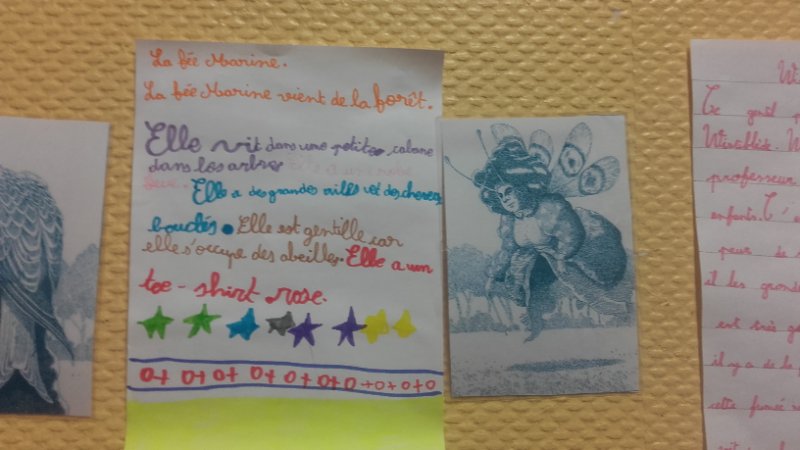 La fée Marine.
La fée Marine vient de la forêt.
Elle vit dans une petite cabane
dans les arbres
Elle a des grandes ailes et des cheveux
bouclés. Elle est gentille car
elle s'occupe des abeilles. Elle a un
tee-shirt rose.
0+ 0+ 0+ 0+ 0+ 0+ 0+ 0 +0+ 0+0
professeur
enfants. C'e
peur de
il les gronde
est très ge
il y a de la
cette fumée